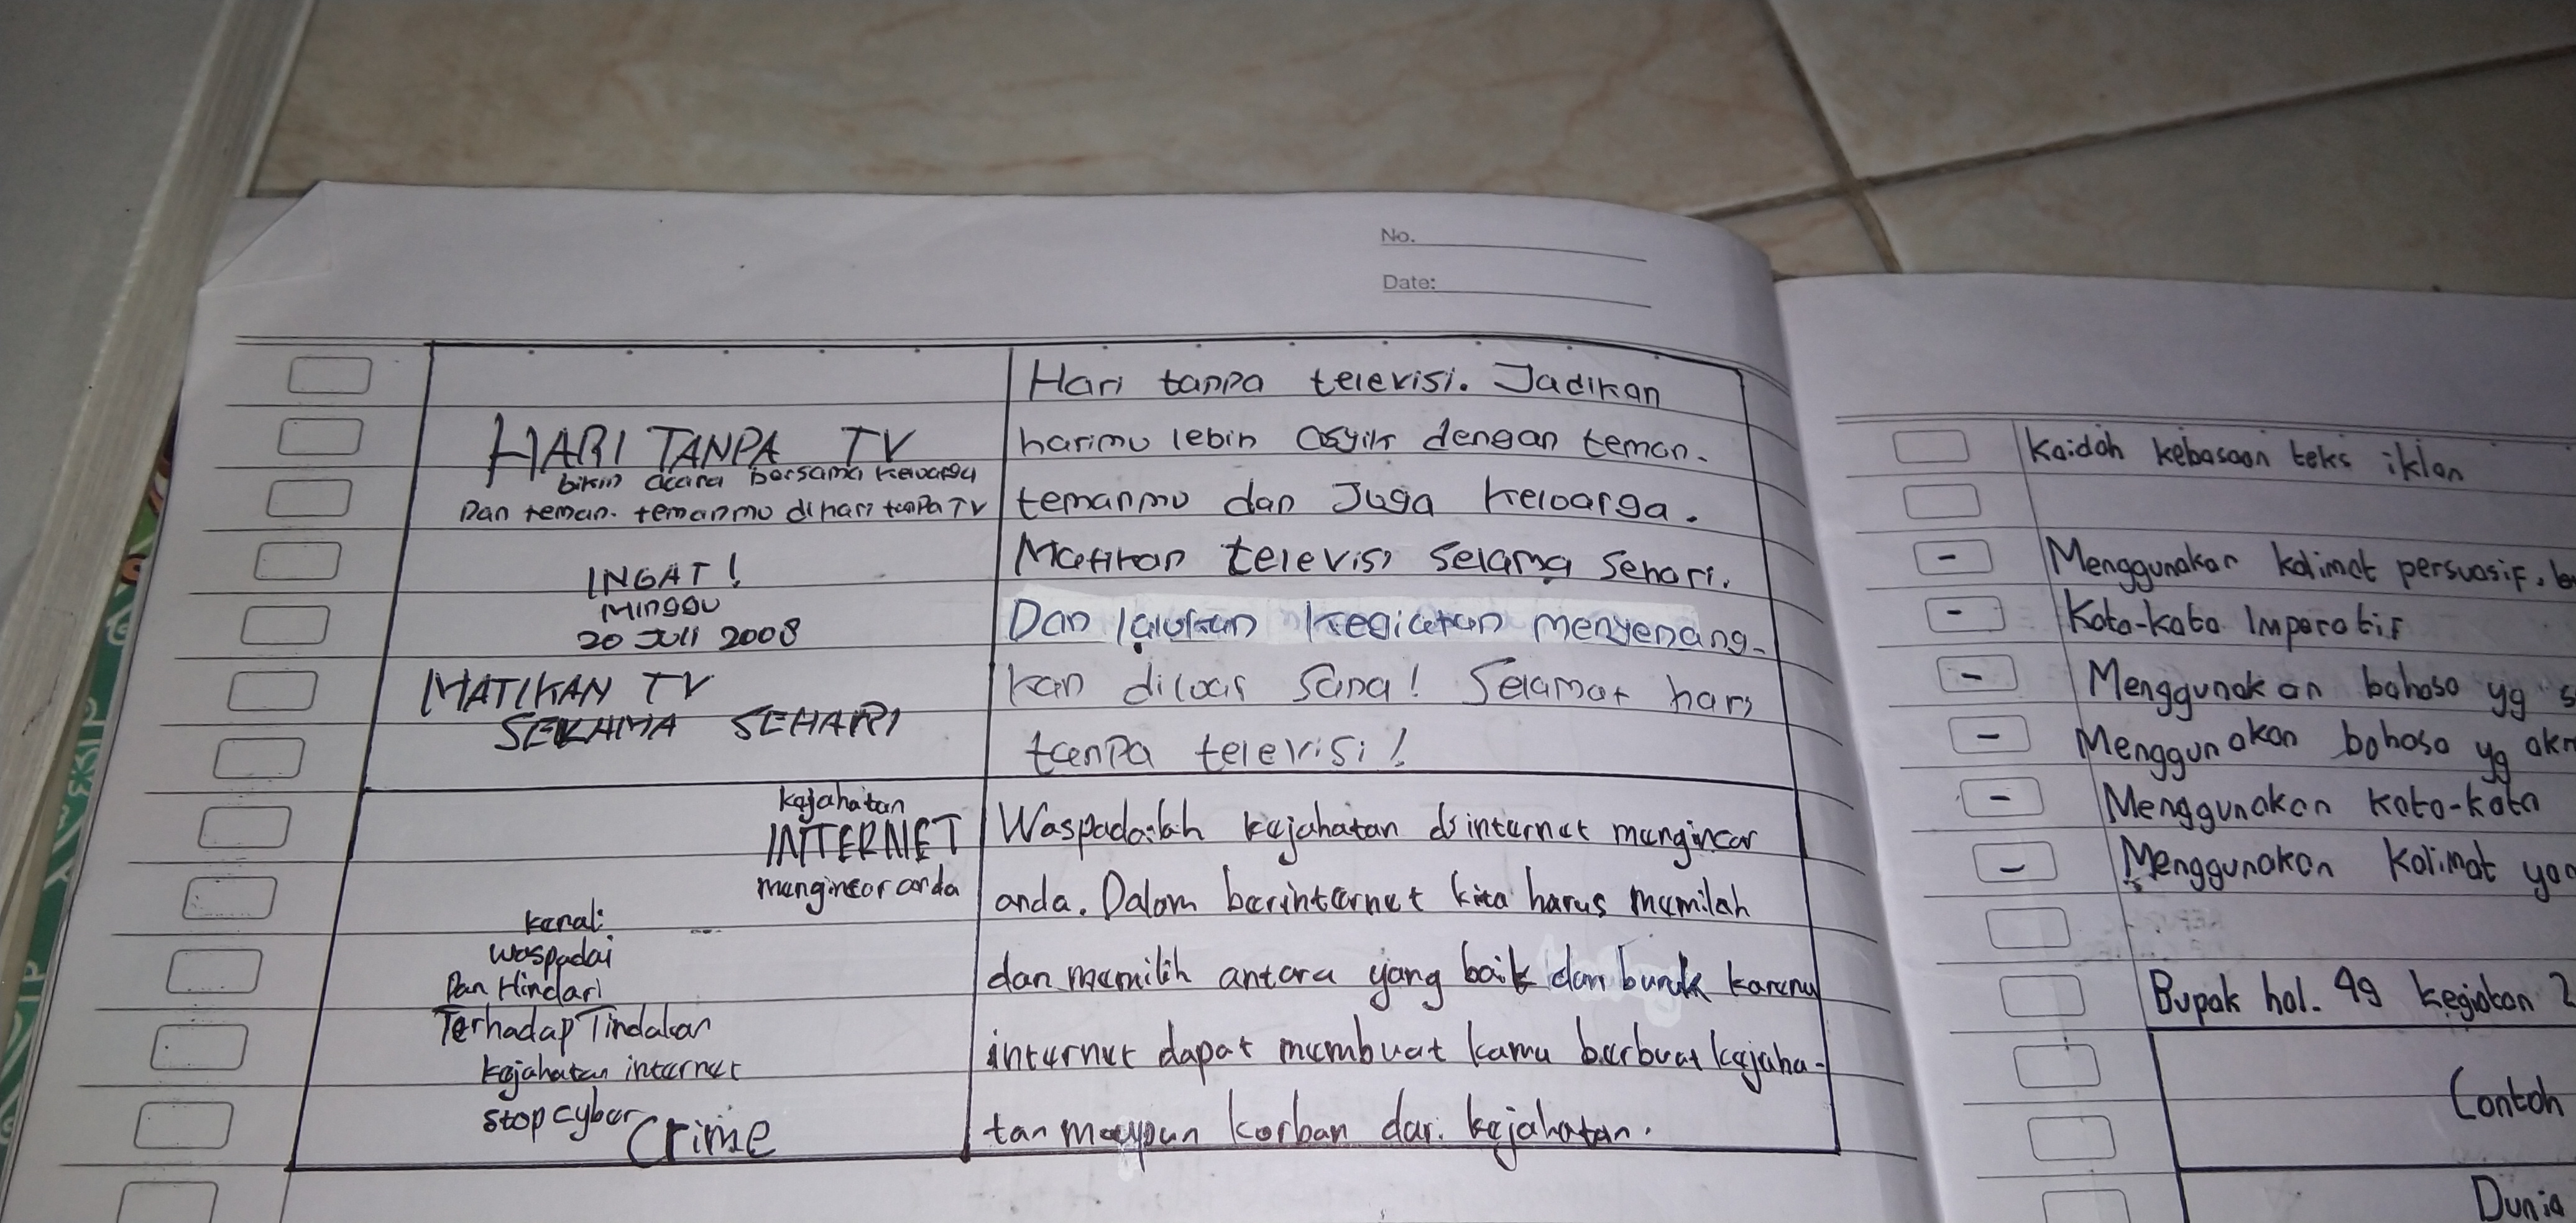 No.
Date:
HARI TANPA TV
bikin acara bersama keluarga
Dan teman-temanmu dihari tanpa TV
INGAT!
Minggu
20 Juli 2008
MATIKAN TV
SELAMA SEHARI
Hari tanpa televisi. Jadikan
harimu lebih asyik dengan teman-
temanmu dan Juga keluarga.
Matikan televisi selama sehari.
Dan lakukan kegiatan menyenang-
kan diluar sana! Selamat hari
tanpa televisi!
kejahatan
INTERNET
mengincar anda
kenali
waspadai
Dan Hindari
Terhadap Tindakan
kejahatan internet
stop cyber Crime
Waspadalah kejahatan di internet mengincar
anda. Dalam berinternet kita harus memilah
dan memilih antara yang baik dan buruk karena
internet dapat membuat kamu berbuat kejaha-
tan maupun korban dari kejahatan.
Kaidah kebasaan teks iklan
- Menggunakan kalimat persuasif.
- Kata-kata Imperatif
- Menggunakan bahasa yg s
- Menggunakan bahasa yg akr
- Menggunakan kata-kata
- Menggunakan kalimat yan
Bupak hal. 49 kegiatan 2
Contoh
Dunia